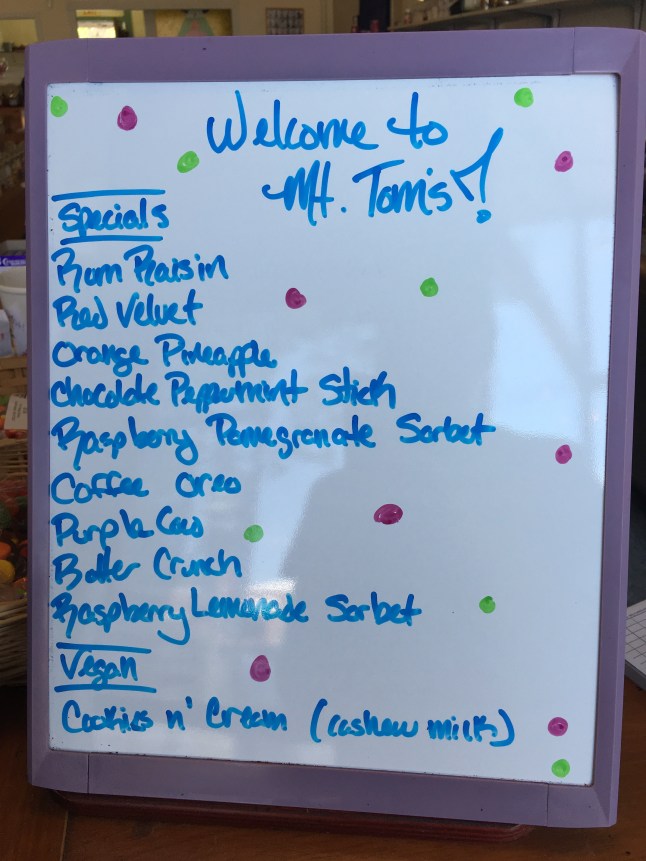 Welcome to
Mt. Tom's!
Specials
Rum Raisin
Red Velvet
Orange Pineapple
Chocolate Peppermint Stick
Raspberry Pomegranate Sorbet
Coffee Oreo
Purple Cow
Butter Crunch
Raspberry Lemonade Sorbet
Vegan
Cookies n' Cream (cashew milk)